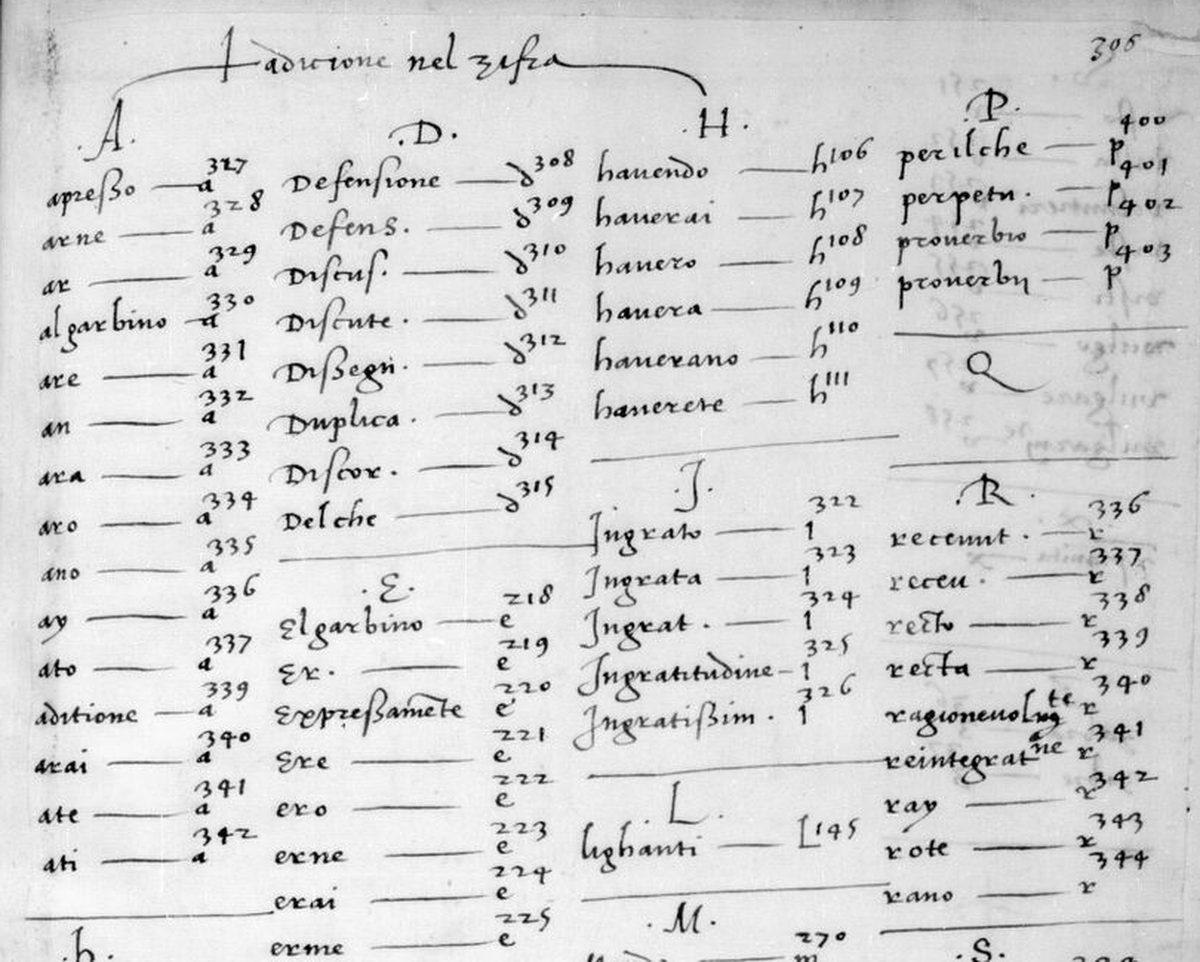 396
Ladicione nel zifra
.A.
apresso — a327
arne — a328
ar — a329
algarbino — a330
are — a331
an — a332
ara — a333
aro — a334
ano — a335
ay — a336
ato — a337
aditione — a339
arai — a340
ate — a341
ati — a342
.b.
.D.
Defensione — d308
Defens. — d309
Discus. — d310
Discute. — d311
Dissegn. — d312
Duplica. — d313
Discor. — d314
Delche — d315
.E.
Elgarbino — e218
Er. — e219
Expressamēte e220
Ere — e221
ero — e222
erne — e223
erai — e224
erme — e225
.H.
havendo — h106
haverai — h107
havero — h108
havera — h109
haverano — h110
haverete — h111
.J.
Ingrato — 1322
Ingrata — 1323
Ingrat. — 1324
Ingratitudine — 1325
Ingratissim. 1326
.L.
lighanti — L145
.M.
m270
.P.
perilche — p400
perpetu. — p401
proverbio — p402
proverbij — p403
Q
.R.
recevut. — r336
recev. — r337
recto — r338
recta — r339
r340
reintegratne r341
ray — r342
rote — r343
rano — r344
.S.